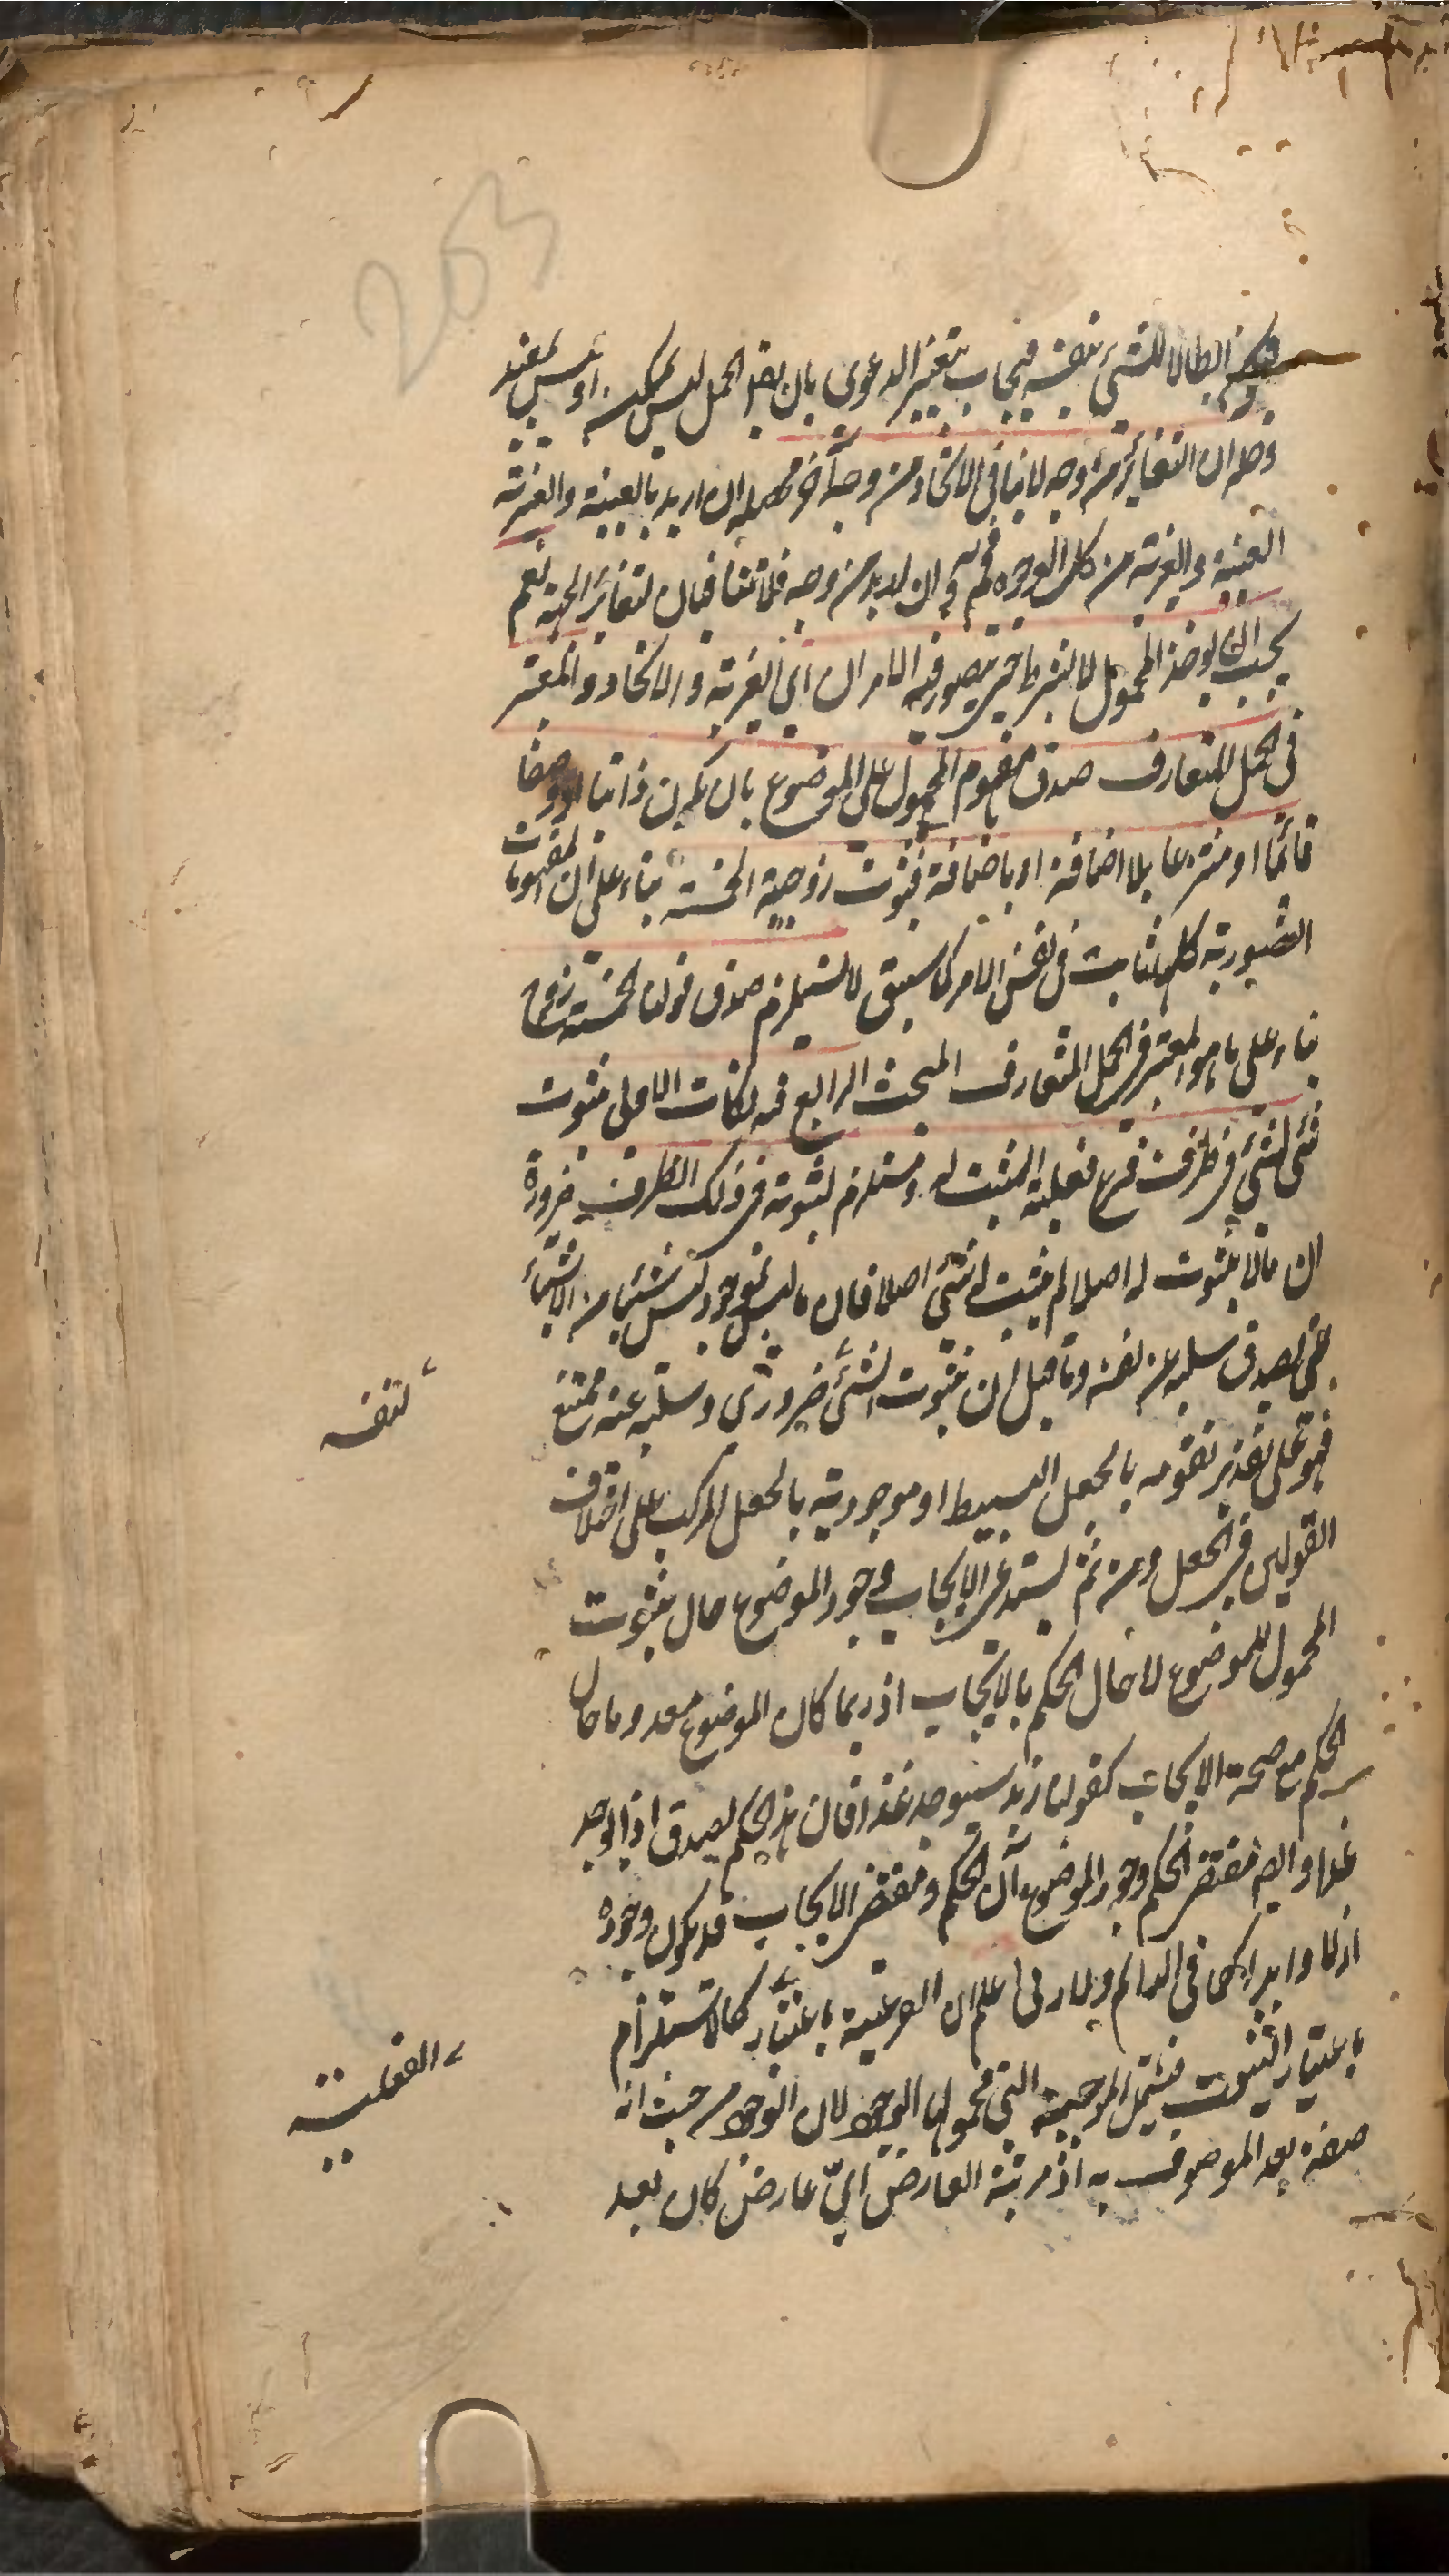 203
فيكون ابطالا للشئ بنفسه فيجاب بتغيير الدعوى بان بعض الحمل ليس بممكن او ليس بمفيد
وحله ان التغاير من وجه لا ينافى الاتحاد من وجه آخر محصله ان اريد بالعينية والغيرية
العينية والغيرية من كل الوجوه فمم وان اريد من وجه فلا تتنافيان لتغاير الجهة نعم
يجب ان يوخذ المحمول لا بشرط شئ حتى يتصور فيه الامران اى الغيرية والاتحاد والمعتبر
فى الحمل المتعارف صدق مفهوم المحمول على الموضوع بان يكون ذاتيا او وصفا
قائما او منتزعا بلا اضافة او باضافة فثبوت زوجية الخمسة بناء على ان المفهومات
التصورية كلها ثابت فى نفس الامر كما سبق لا يستلزم صدق قولنا الخمسة زوج
بناء على ما هو المعتبر فى الحمل المتعارف المبحث الرابع فيه نكات الاولى ثبوت
شئ لشئ فى ظرف فرع فعلية المثبت له ومستلزم لثبوته فى ذلك الظرف ضرورة
ان مالا ثبوت له اصلا لم يثبت له شئ اصلا فان ما ليس بموجود ليس شئيا من الاشياء
حتى يصدق سلبه عن نفسه وما قيل ان ثبوت الشئ ضرورى وسلبه عنه ممتنع
لنفسه
فهو على تقدير تقومه بالجعل البسيط او موجوديته بالجعل المركب على اختلاف
القولين فى الجعل ومن ثم يستدعى الايجاب وجود الموضوع حال ثبوت
المحمول للموضوع لا حال الحكم بالايجاب اذ ربما كان الموضوع معدوما حال
الحكم مع صحة الايجاب كقولنا زيد سيوجد غدا فان هذا الحكم يصدق اذا وجد
غدا وايضا مقتضى الحكم وجود الموضوع آن الحكم ومقتضى الايجاب قد يكون وجوده
ازلا وابدا كما فى الدائم ولما روى اعلم ان الفرعية باعتبار كالاستلزام
الفعلية
باعتبار الثبوت فيشمل الموجبة التى محمولها الوجود لان الوجود من حيث انه
صفة بعد الموصوف به اذ مرتبة العارض اىّ عارض كان بعد